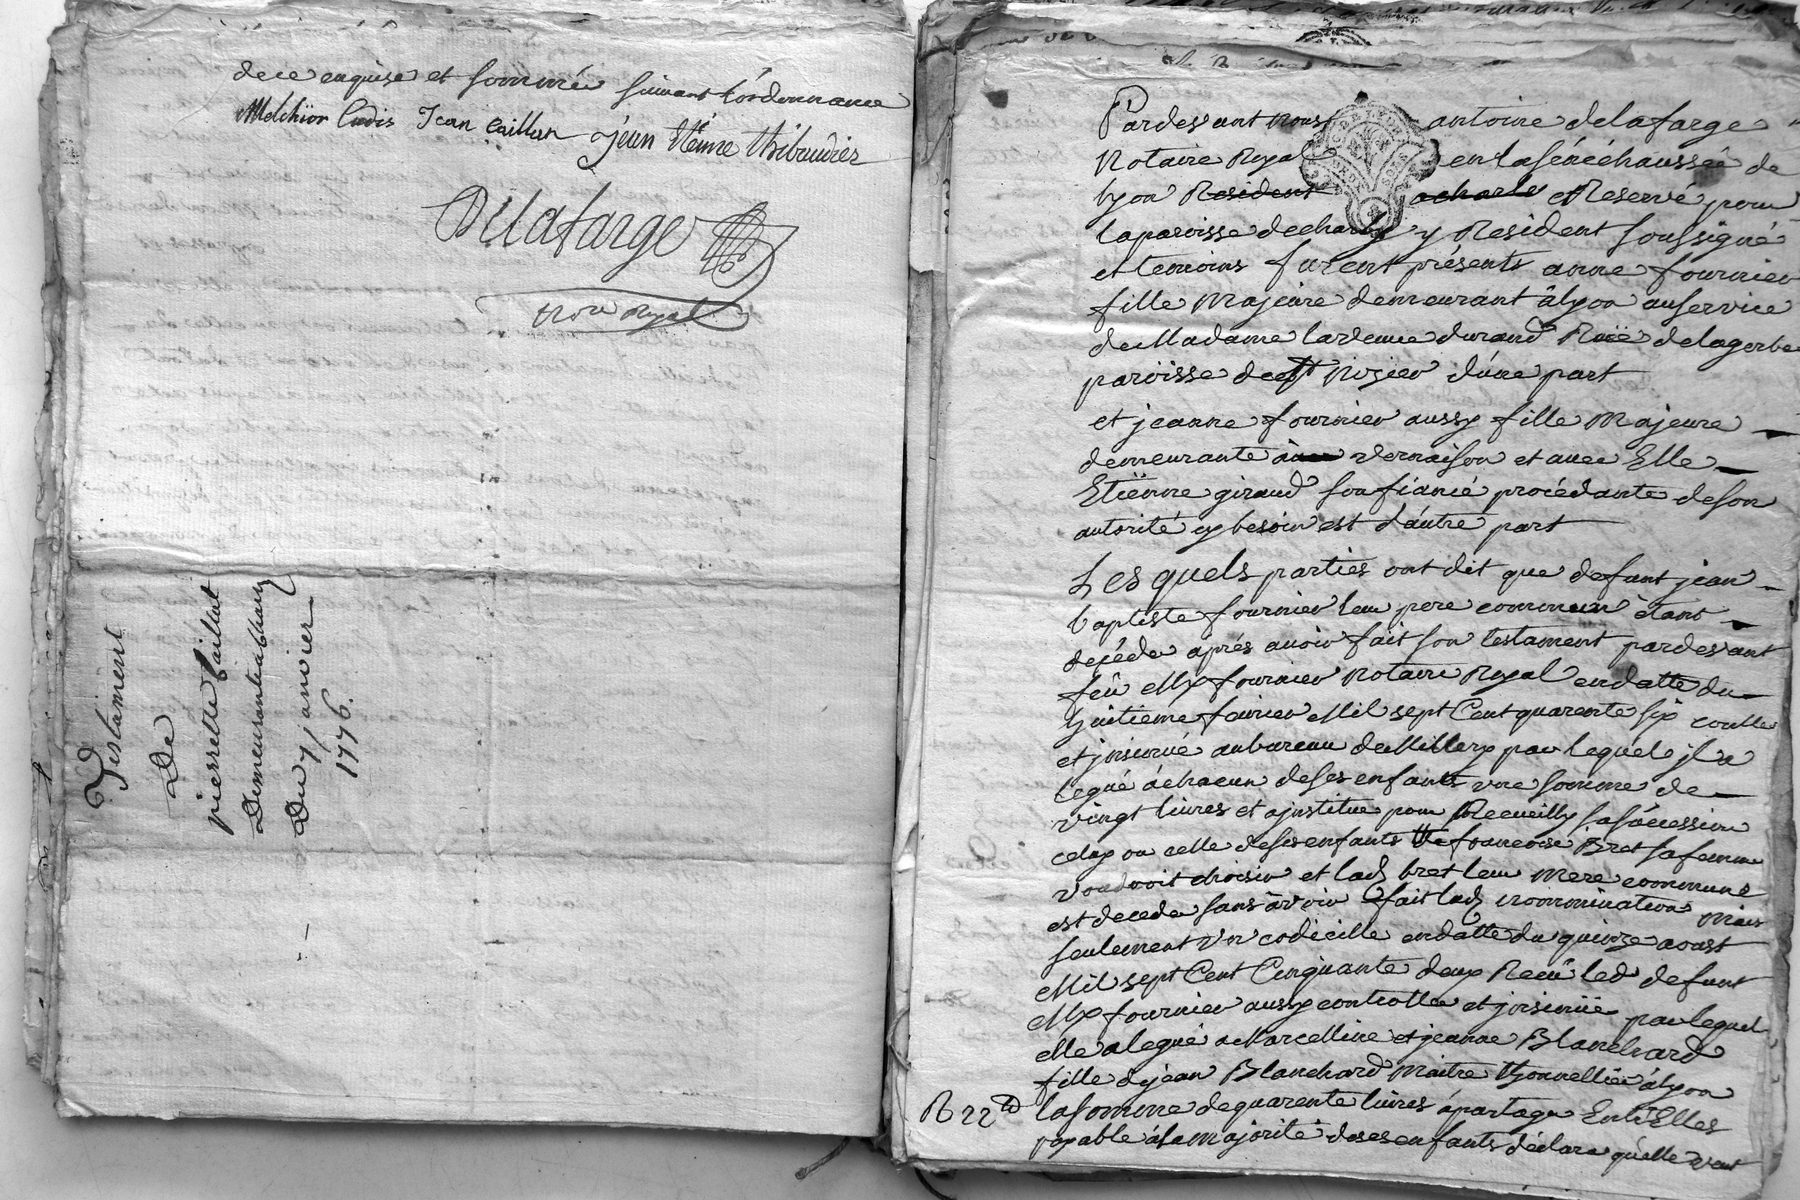 de ce enquise et sommée suivant l'ordonnance
Melchior Jean Caillat jean Etienne thibaudier
Delafarge
nore Royal
Testament
De
pierrette
Demeurante a Charly
Du 7 janvier
1776.
Pardevant nous antoine delafarge
Notaire Royal en la sénéchaussée de
lyon Resident acharly et Reservé pour
la paroisse de charly y Resident soussigné
et temoins furent présents anne fournier
fille Majeure demeurant à lyon au service
de Madame durand Ruë delagerbe
paroisse de st nizier d'une part
et jeanne fournier aussy fille Majeure
demeurante à vernaison et avec Elle
Etiënne giraud son fiancé procédante de son
autorité sy besoin est d'autre part
Les quels parties ont dit que defunt jean
baptiste fournier leur pere commun étant
decéde aprés avoir fait son testament pardevant
feû Me fournier Notaire Royal en datte du
huitieme fevrier Mil sept Cent quarente six controllé
et insinué au bureau de Millery par lequel il a
legué à chacun de ses enfants une somme de
vingt livres et a institué pour Recueilly sa sucession
celuy ou celle de ses enfants que francoise Bret sa femme
voudroit choisir et lad. bret leur mere commune
est decede sans avoir fait lad. nomination mais
seulement un codicille en datte du quinze aoust
Mil sept Cent Cinquante deux Recû led. defunt
Me fournier aussy controllé et insinué par lequel
elle a legué a Marcelline et jeanne Blanchard
fille de jean Blanchard Maitre thonnellier à lyon
la somme de quarente livres à partager Entre Elles
payable à la majorité de ses enfants déclara qu'elle veut
R 22